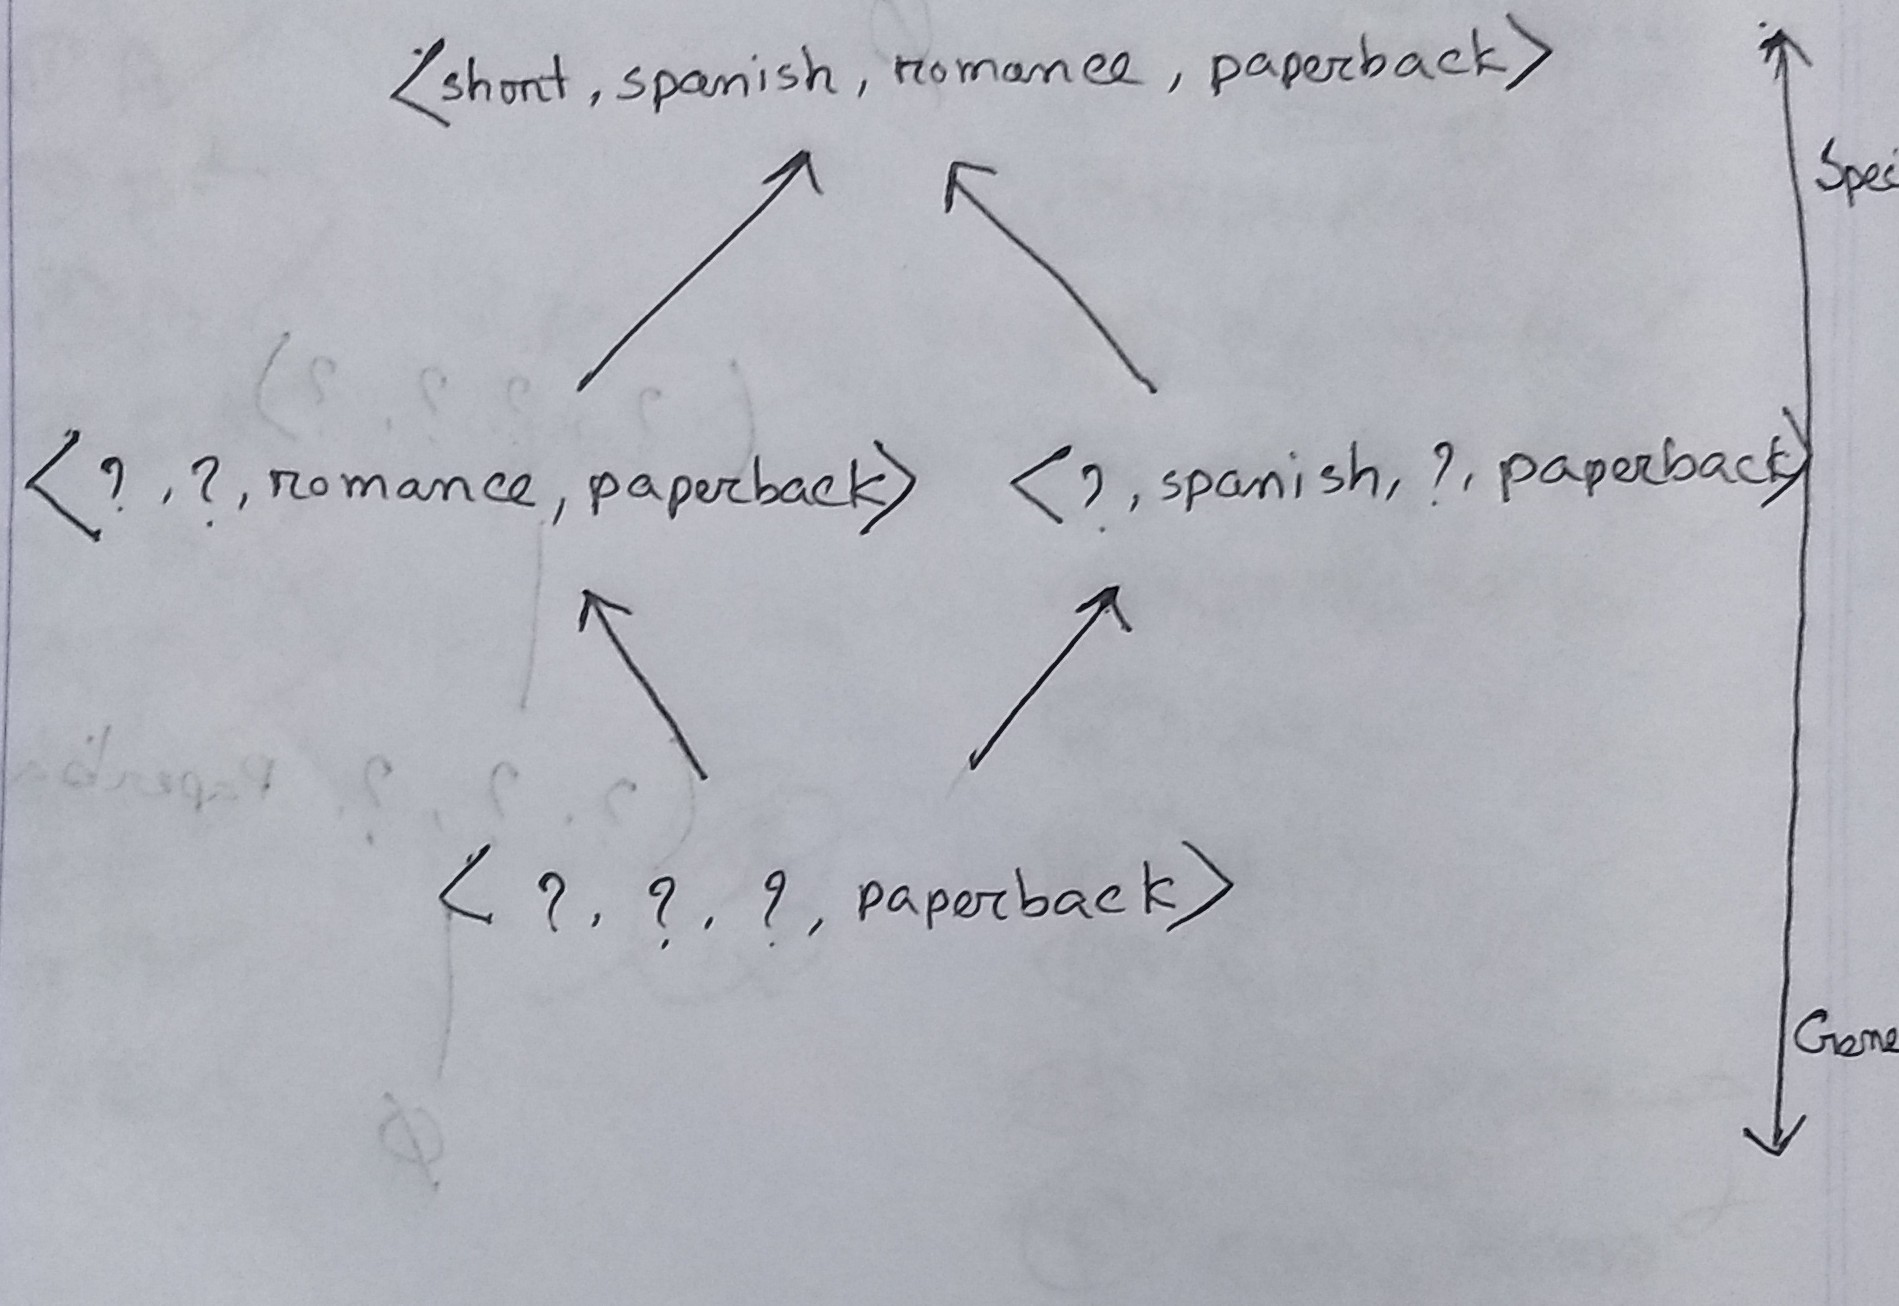 <short, spanish, romance, paperback>
Spec
<?, ?, romance, paperback> <?, spanish, ?, paperback>
<?, ?, ?, paperback>
Gene